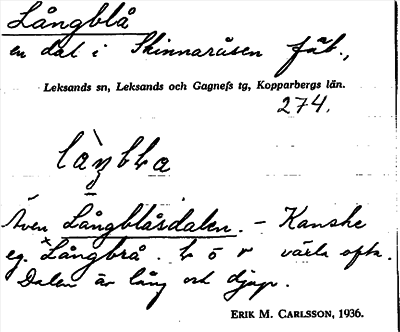 Långblå
en dal i Skinnaråsen fäb.,
Leksands sn, Leksands och Gagnefs tg, Kopparbergs län.
274.
Även Långblåsdalen. – Kanske
eg. *Långbrå. l o r växla ofta.
Dalen är lång och djup.
ERIK M. CARLSSON, 1936.